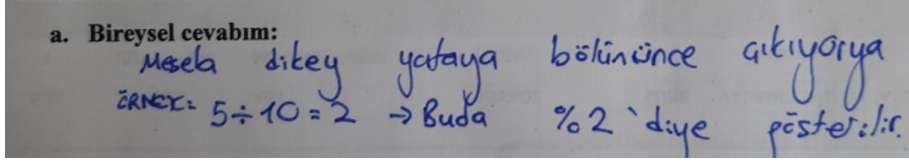 a. Bireysel cevabım:
Mesela dikey yataya bölününce çıkıyorya
ÖRNEK: 5÷10=2 → Buda %2 'diye gösterilir.